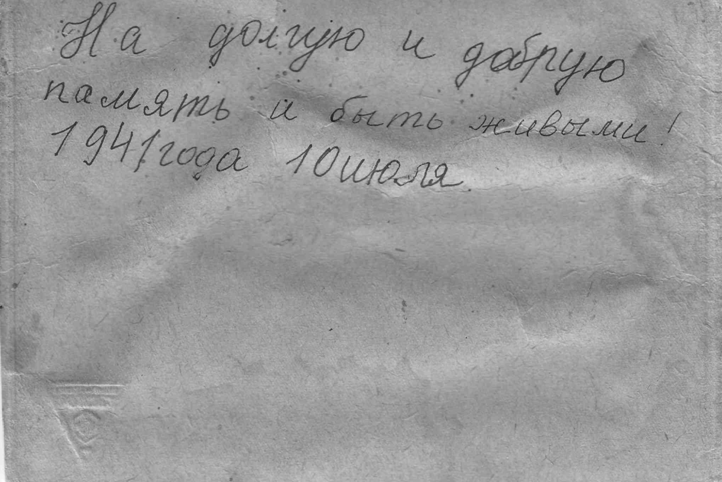 На долгую и добрую
память и быть живыми!
1941 года 10 июля.